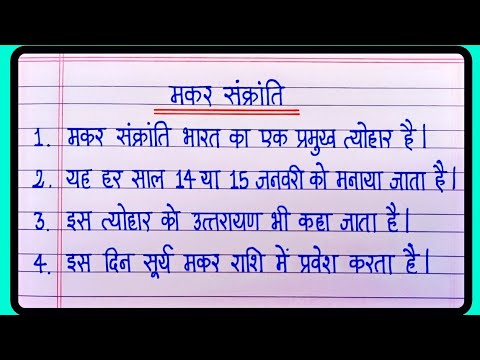 मकर संक्रांति
1. मकर संक्रांति भारत का एक प्रमुख त्योहार है।
2. यह हर साल 14 या 15 जनवरी को मनाया जाता है।
3. इस त्योहार को उत्तरायण भी कहा जाता है।
4. इस दिन सूर्य मकर राशि में प्रवेश करता है।